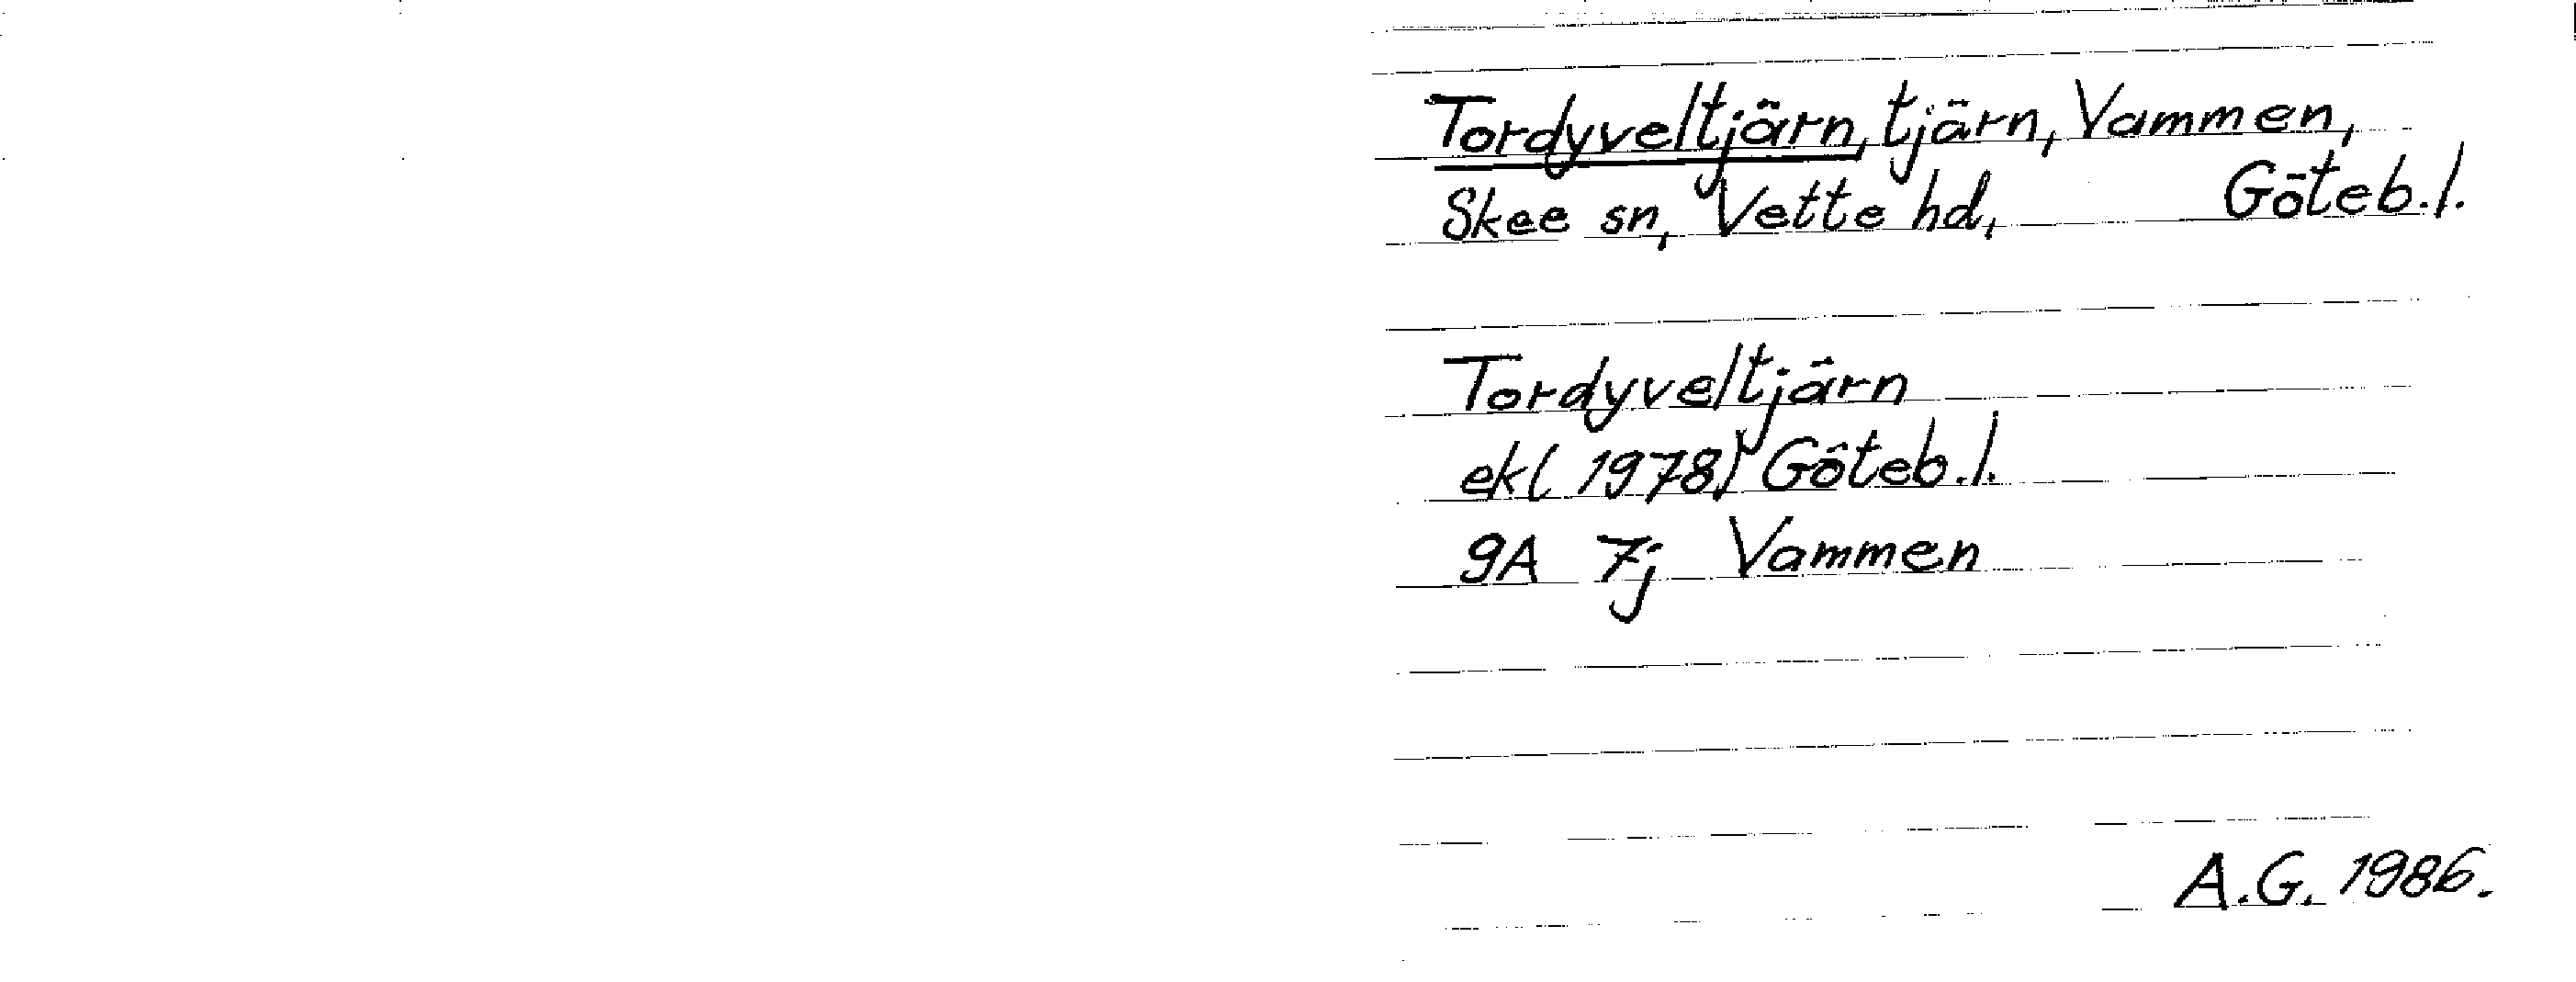 Tordyveltjärn, tjärn, Vammen,
Skee sn, Vette hd, Göteb.l.
Tordyveltjärn
ek(1978) Göteb.l.
9A 7j Vammen
A.G. 1986.